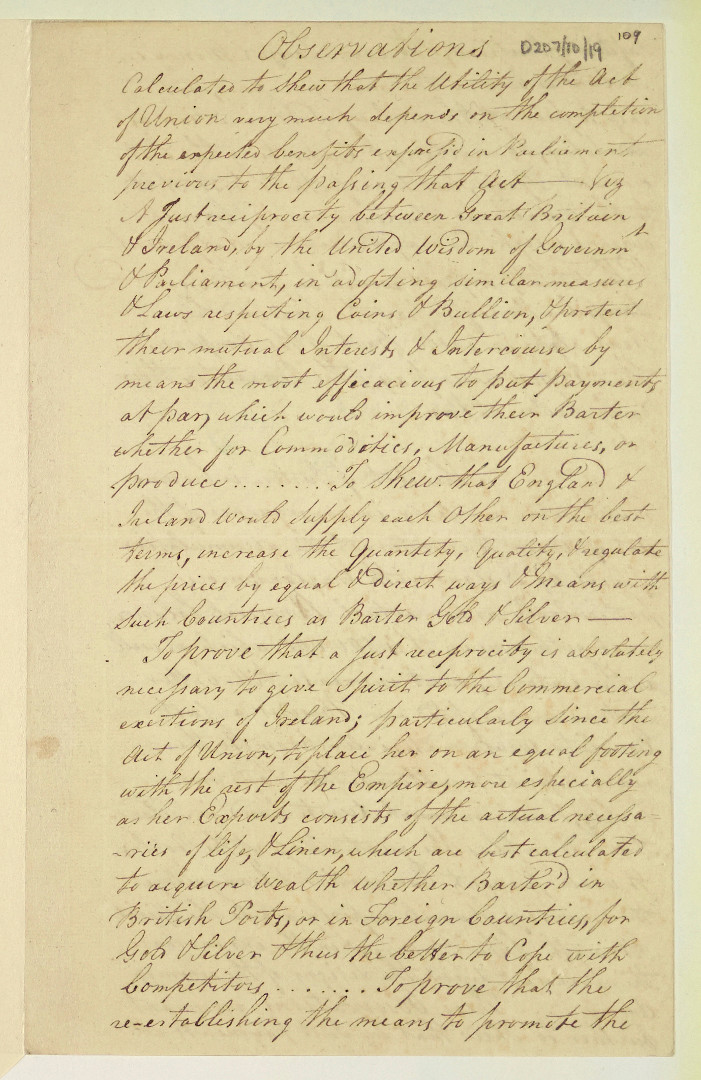 Observations
D207/10/19
109
Calculated to shew that the Utility of the Act
of Union very much depends on the completion
of the expected benefits express'd in Parliament
previous to the passing that Act —— Viz
A Just reciprocity between Great Britain
& Ireland, by the United Wisdom of Governmt
& Parliament, in adopting similar measures
& Laws respecting Coins & Bullion, & protect
their mutual Interests & Intercourse by
means the most efficacious to put payments
at par, which would improve their Barter
whether for Commodities, Manufactures, or
produce ......... To Shew that England &
Ireland would supply each Other on the best
terms, increase the Quantity, Quality, & regulate
the prices by equal & direct ways & means with
such Countries as Barter Gold & Silver —
To prove that a just reciprocity is absolutely
necessary to give Spirit to the Commercial
exertions of Ireland; particularly since the
Act of Union, to place her on an equal footing
with the rest of the Empire, more especially
as her Exports consists of the actual necessa=
-ries of life, & Linen, which are best calculated
to acquire Wealth whether Barter'd in
British Ports, or in Foreign Countries, for
Gold & Silver & thus the better to Cope with
Competitors ....... To prove that the
re-establishing the means to promote the